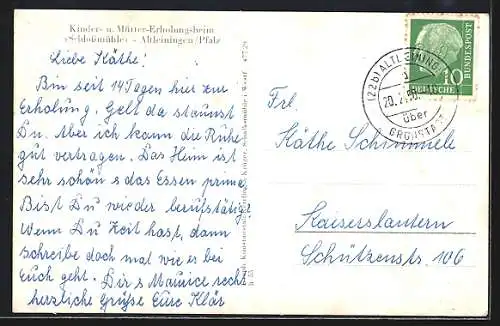 Kinder- u. Mütter-Erholungsheim
»Schloßmühle« - Altleiningen/Pfalz
Liebe Käthe!
Bin seit 14 Tagen hier zur
Erholung. Gelt da staunst
Du. Aber ich kann die Ruhe
gut vertragen. Das Heim ist
sehr schön s das Essen prima
Bist Du wieder berufstätig
Wenn Du Zeit hast, dann
schreibe doch mal wie er bei
Euch geht. Dir s Maurice recht
herzliche Grüsse Eure Klär
(22b) ALTLEININGEN
über
GRÜNSTADT
10
DEUTSCHE
BUNDESPOST
Frl.
Käthe Schimmele
Kaiserslautern
Schützenstr. 106